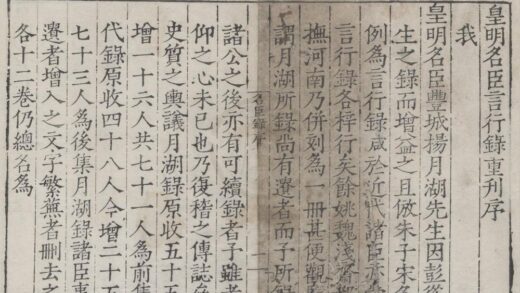 皇明名臣言行錄重刊序
我
皇明名臣豐城楊月湖先生因彭從
生之錄而增益之且倣朱子宋名
例為言行錄咸於近代諸臣
言行錄各梓行矣餘姚魏淺齋
撫河南乃併刻為一冊甚便觀
謂月湖所錄尚有遺者而子所
名臣錄序
諸公之後亦有可續錄者予雖
仰之心未已也乃復稽之傳誌
史質之輿議月湖錄原收五十五
增一十六人共七十一人為前集
代錄原收四十八人今增二十五
七十三人為後集月湖錄諸臣事
遺者增入之文字繁蕪者刪去之
各十二卷仍總名為